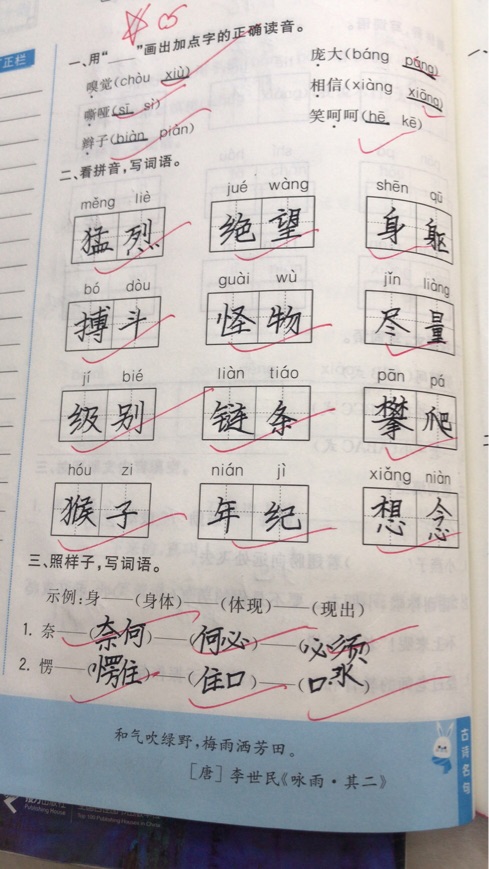 正栏
一、用“＿”画出加点字的正确读音。
嗅觉(chòu xiù) 庞大(báng páng)
嘶哑(sī sì) 相信(xiàng xiāng)
辫子(biàn pián) 笑呵呵(hē kē)
二、看拼音,写词语。
měng liè jué wàng shēn qū
猛烈 绝望 身躯
bó dòu guài wù jǐn liàng
搏斗 怪物 尽量
jí bié liàn tiáo pān pá
级别 链条 攀爬
hóu zi nián jì xiǎng niàn
猴子 年纪 想念
三、照样子,写词语。
示例:身——(身体)——(体现)——(现出)
1. 奈——(奈何)——(何必)——(必须)
2. 愣——(愣住)——(住口)——(口水)
和气吹绿野,梅雨洒芳田。
[唐]李世民《咏雨·其二》
古诗名句
Publishing House
Top 100 Publishing Houses in China